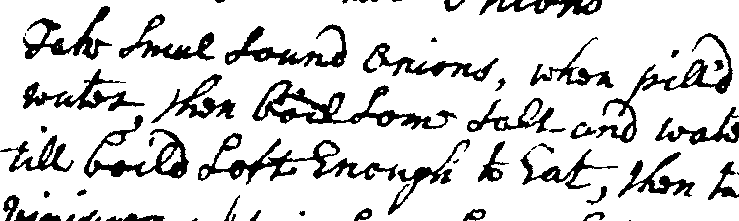 Onions
Take Smal Sound Onions, when pill'd
water, then boil Some Salt and wate
till boild Soft Enough to Eat, then ta